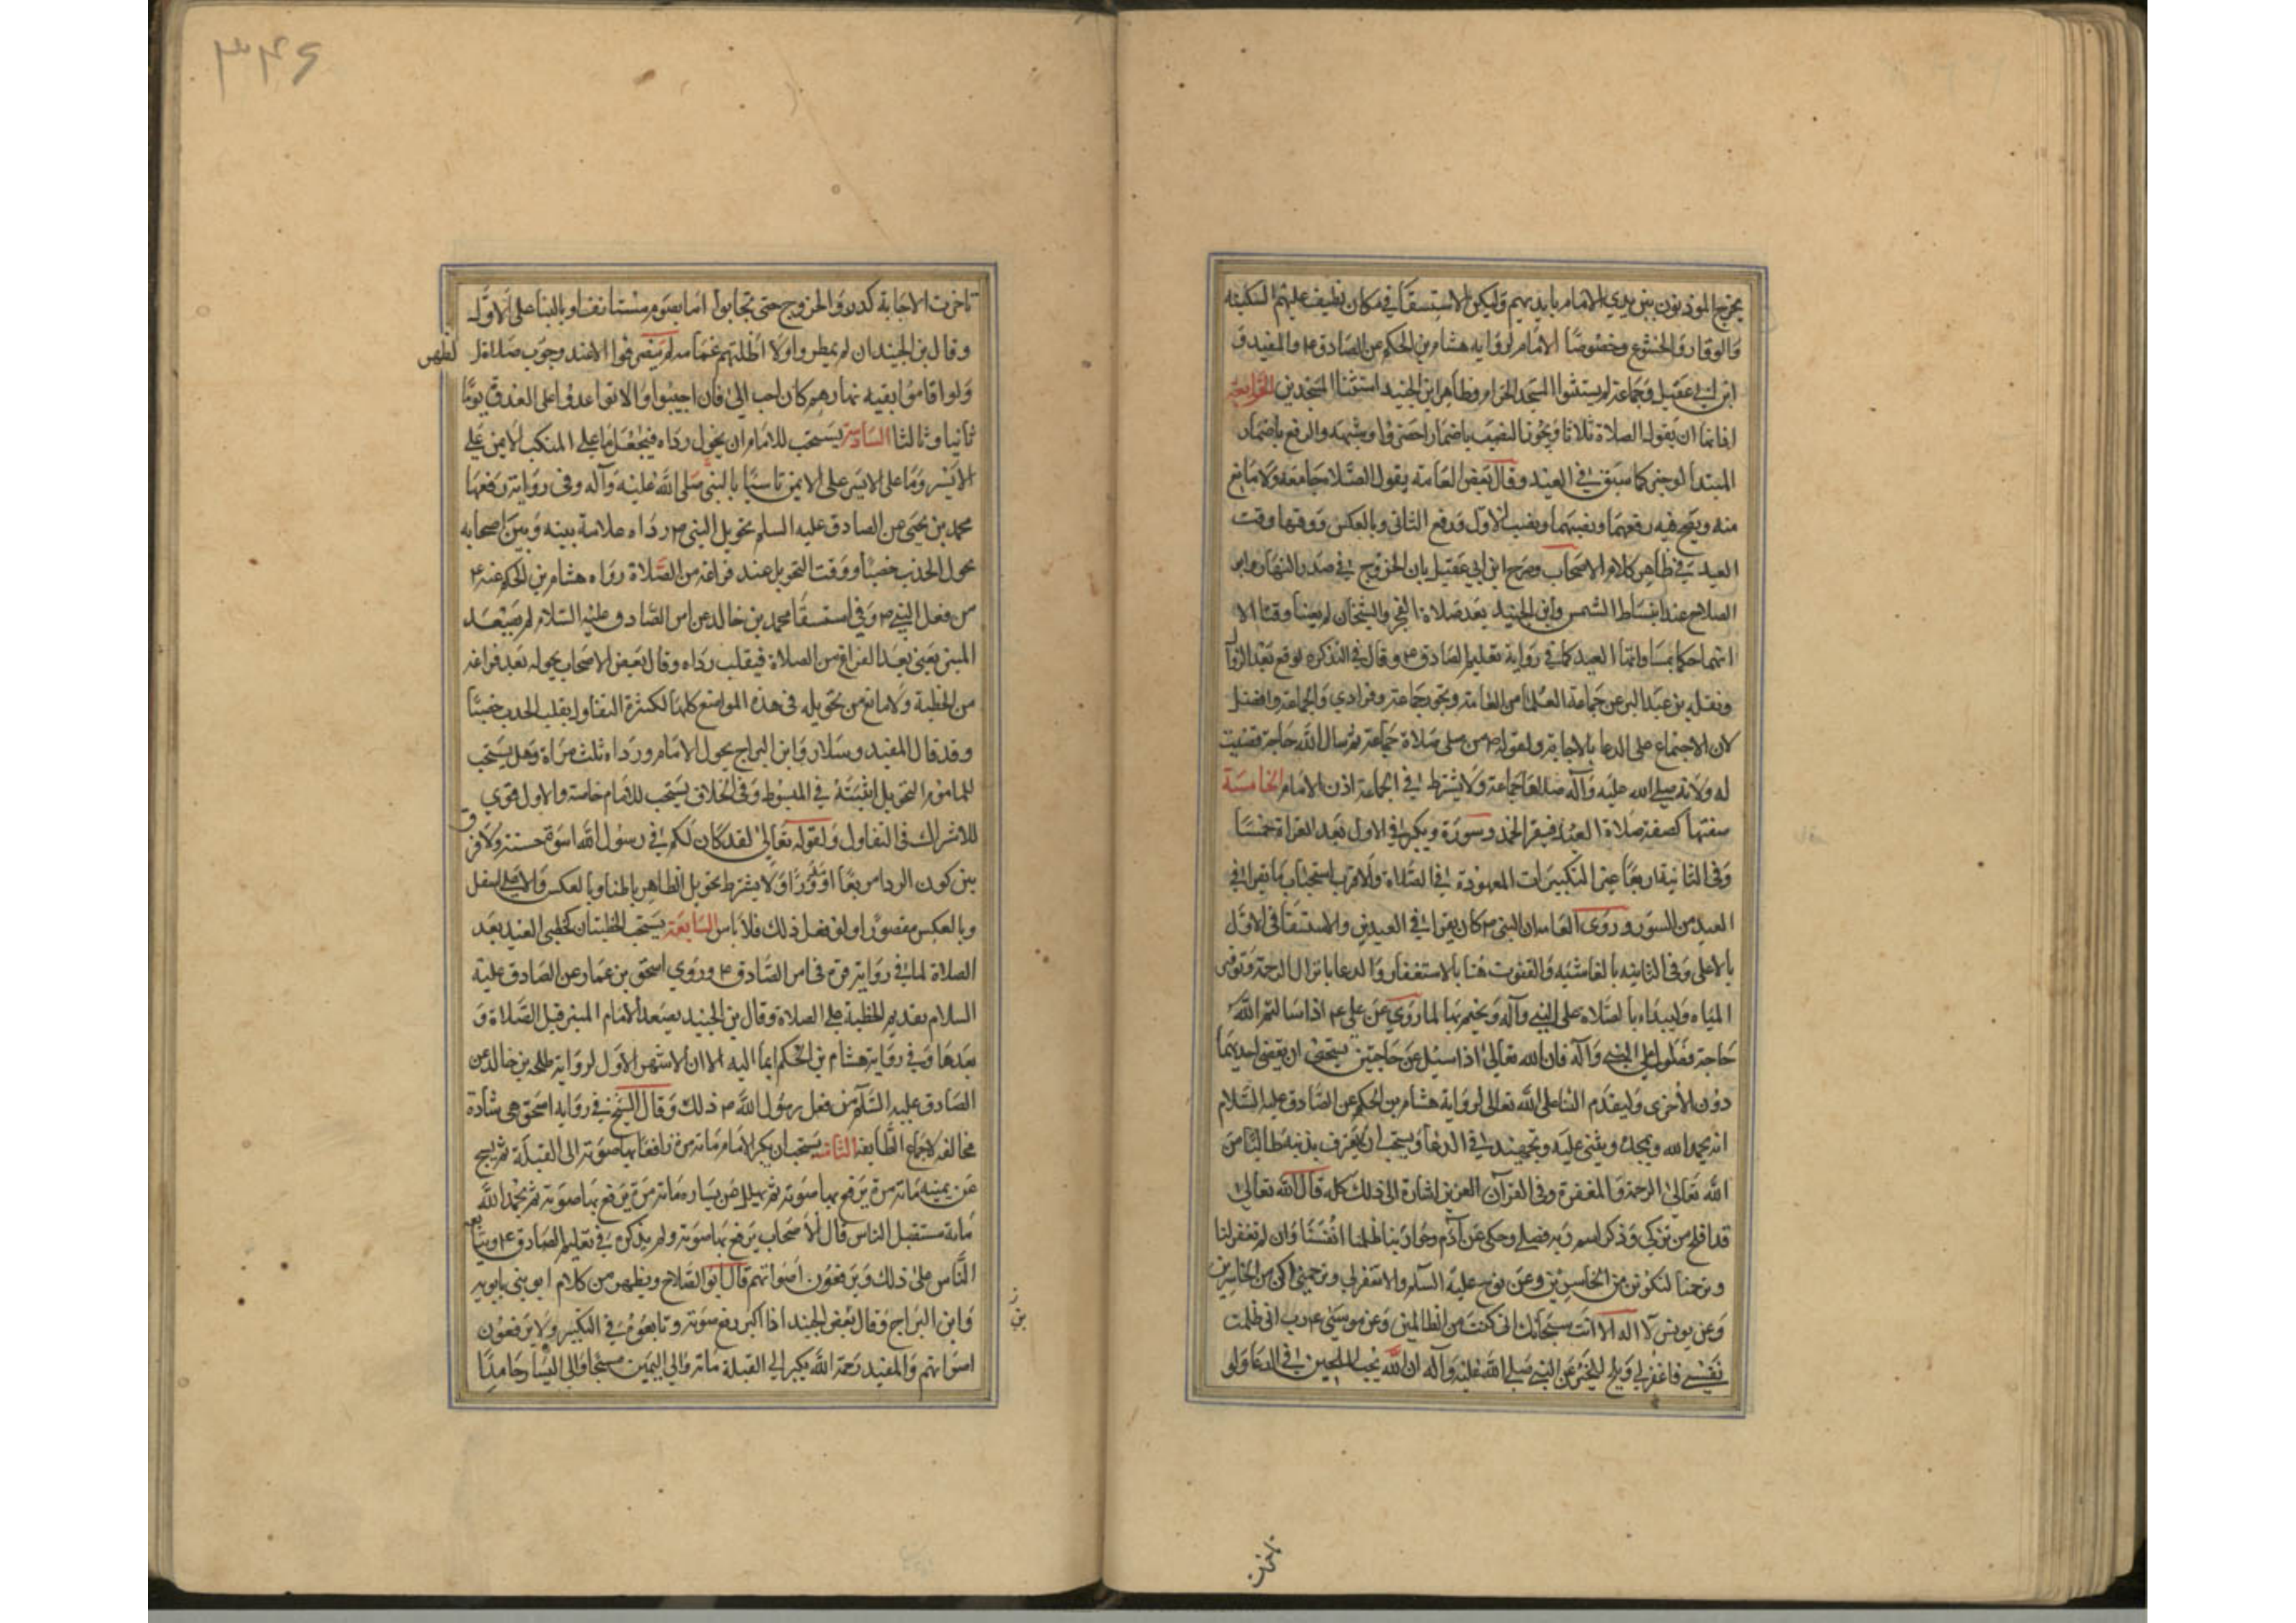 يخرج المؤذنون بين يدي الامام بايديهم وليكن الاستسقا في مكان نظيف عليهم السكينه
والوقار والخشوع وخصوصا الامام لروايه هشام بن الحكم عن الصادق ع والمفيد و
ابن ابي عقيل وجماعة لم يستثنوا المسجد الحرام وظاهر ابن الجنيد استثنا المسجدين الرابعة
اذانها ان يقول الصلاة ثلاثا ويجوز النصب باضمار احضروا وشبهه والرفع باضمار
المبتدا لوخبر كما سبق في العيد وقال بعض العامه يقول الصلاة جامعة ولا مانع
منه ويصح فيه رفعهما ونصبهما ونصب الاول ورفع الثاني وبالعكس ووقتها وقت
العيد في ظاهر كلام الاصحاب وصرح ابن ابي عقيل بان الخروج في صدر النهار وابو
الصلاح عند انبساط الشمس وابن الجنيد بعد صلاة الفجر والشيخان لم يعينا وقتا الا
انهما حكما بمساواتها العيد كما في رواية تعليم الصادق ع وقال في التذكره لو قع بعد الزوال
ونقله بن عبد البر عن جماعة العلما من العامة ويجوز جماعة وفرادي والجماعة افضل
لان الاجتماع على الدعا بالاجابة ولقوله ص من صلى صلاة جماعة ثم سال الله حاجة قضيت
له ولانه صلى الله عليه وآله صلاها جماعة ولا يشترط في الجماعة اذن الامام الخامسة
صفتها كصفة صلاة العيد فيقرا الحمد وسورة ويكبر في الاول بعد القراة خمسا
وفي الثانية اربعا غير التكبيرات المعهودة في الصلاة والاقرب استحباب ما يقرا في
العيد من السور وروى العامه ان النبي ص كان يقرا في العيدين والاستسقا في الاول
بالاعلى وفي الثانيه بالغاشيه والقنوت هنا بالاستغفار والدعا بانزال الرحمة وتوفير
المياه وليبداء بالصلاة على النبي وآله ويختم بها لما روي عن علي ع اذا سالتم الله
حاجة فصلوا على النبي وآله فان الله تعالى اذا سئل عن حاجتين يستحيى ان يقضي احديهما
دون الاخرى وليقدم الثنا على الله تعالى لرواية هشام بن الحكم عن الصادق عليه السلام
انه يحمد الله ويمجده ويثني عليه ويجتهد في الدعا ويستحب ان يعترف بذنبه طالبا من
الله تعالى الرحمة والمغفرة وفي القرآن العزيز اشارة الى ذلك كله قال الله تعالى
قد افلح من تزكي وذكر اسم ربه فصلى وحكى عن آدم وحوا ربنا ظلمنا انفسنا وان لم تغفر لنا
وترحمنا لنكونن من الخاسرين وعن نوح عليه السلم والا تغفر لي وترحمني اكن من الخاسرين
وعن يونس لا اله الا انت سبحانك اني كنت من الظالمين وعن موسى ع رب اني ظلمت
نفسي فاغفر لي ويلح للخبر عن النبي صلى الله عليه وآله ان الله يحب الملحين في الدعا ولو
تاخرت
٣٤٦
تاخرت الاجابة كرروا الخروج حتى تجابوا اما بصوم مستانف او بالبنا على الاول
وقال بن الجنيد ان لم يمطروا ولا اظلتهم غمامه لم ينصرفوا الا عند وجوب صلاة الظهر
ولو اقاموا بقيه نهارهم كان احب الي فان اجيبوا والا تواعدوا على الغدو يوما
ثانيا وثالثا السادسة يستحب للامام ان يحول رداه فيجعل ما على المنكب الايمن على
الايسر وما على الايسر على الايمن تاسيا بالنبي صلى الله عليه وآله وفي رواية رفعها
محمد بن يحيى عن الصادق عليه السلم تحويل النبي ص رداه علامة بينه وبين اصحابه
تحول الجدب خصبا ووقت التحويل عند فراغه من الصلاة رواه هشام بن الحكم عنه ع
من فعل النبي ص وفي استسقا محمد بن خالد عن امر الصادق عليه السلام ثم يصعد
المنبر يعني بعد الفراغ من الصلاة فيقلب رداه وقال بعض الاصحاب يحوله بعد فراغه
من الخطبة ولا مانع من تحويله في هذه المواضع كلها لكثرة التفاول بقلب الجدب خصبا
وقد قال المفيد وسلار وابن البراج يحول الامام رداه ثلث مراة وهل يستحب
للماموم التحويل اثبته في المبسوط وفي الخلاف يستحب للامام خاصة والاول قوي
للاشتراك في التفاول ولقوله تعالى لقد كان لكم في رسول الله اسوة حسنة ولا فرق
بين كون الردا مربعا او مقورا ولا يشترط تحويل الظاهر باطنا وبالعكس والاعلى اسفل
وبالعكس ولو فعل ذلك فلا باس السابعة يستحب الخطبتان كخطبتي العيد بعد
الصلاة لما في رواية مرة في امر الصادق ع وروي اسحق بن عمار عن الصادق عليه
السلام تقديم الخطبة على الصلاة وقال بن الجنيد يصعد الامام المنبر قبل الصلاة و
بعدها وفي رواية هشام بن الحكم ايما اليه الا ان الاشهر الاول لرواية طلحه بن خالد عن
الصادق عليه السلام من فعل رسول الله ص ذلك وقال الشيخ في رواية اسحق هي شاذة
مخالفة لاجماع الطايفه الثامنه يستحب ان يكبر الامام مائة مرة رافعا بها صوته الى القبلة ثم يسبح
عن يمينه مائة مرة يرفع بها صوته ثم يهلل عن يساره مائة مرة يرفع بها صوته ثم يحمد الله
مائة مستقبل الناس قال الاصحاب يرفع بها صوته ولم يذكره في تعليم الصادق ع ويتابعه
الناس على ذلك ويرفعون اصواتهم قال ابو الصلاح ويظهر من كلام ابو بني بابويه
وابن البراج وقال بعض الجنيد اذا اكبر رفع صوته وتابعوه في التكبير ولا يرفعون
اصواتهم والمفيد رحمة الله يكبر الى القبلة مائة والى اليمين مسبحا والى اليسار حامدا